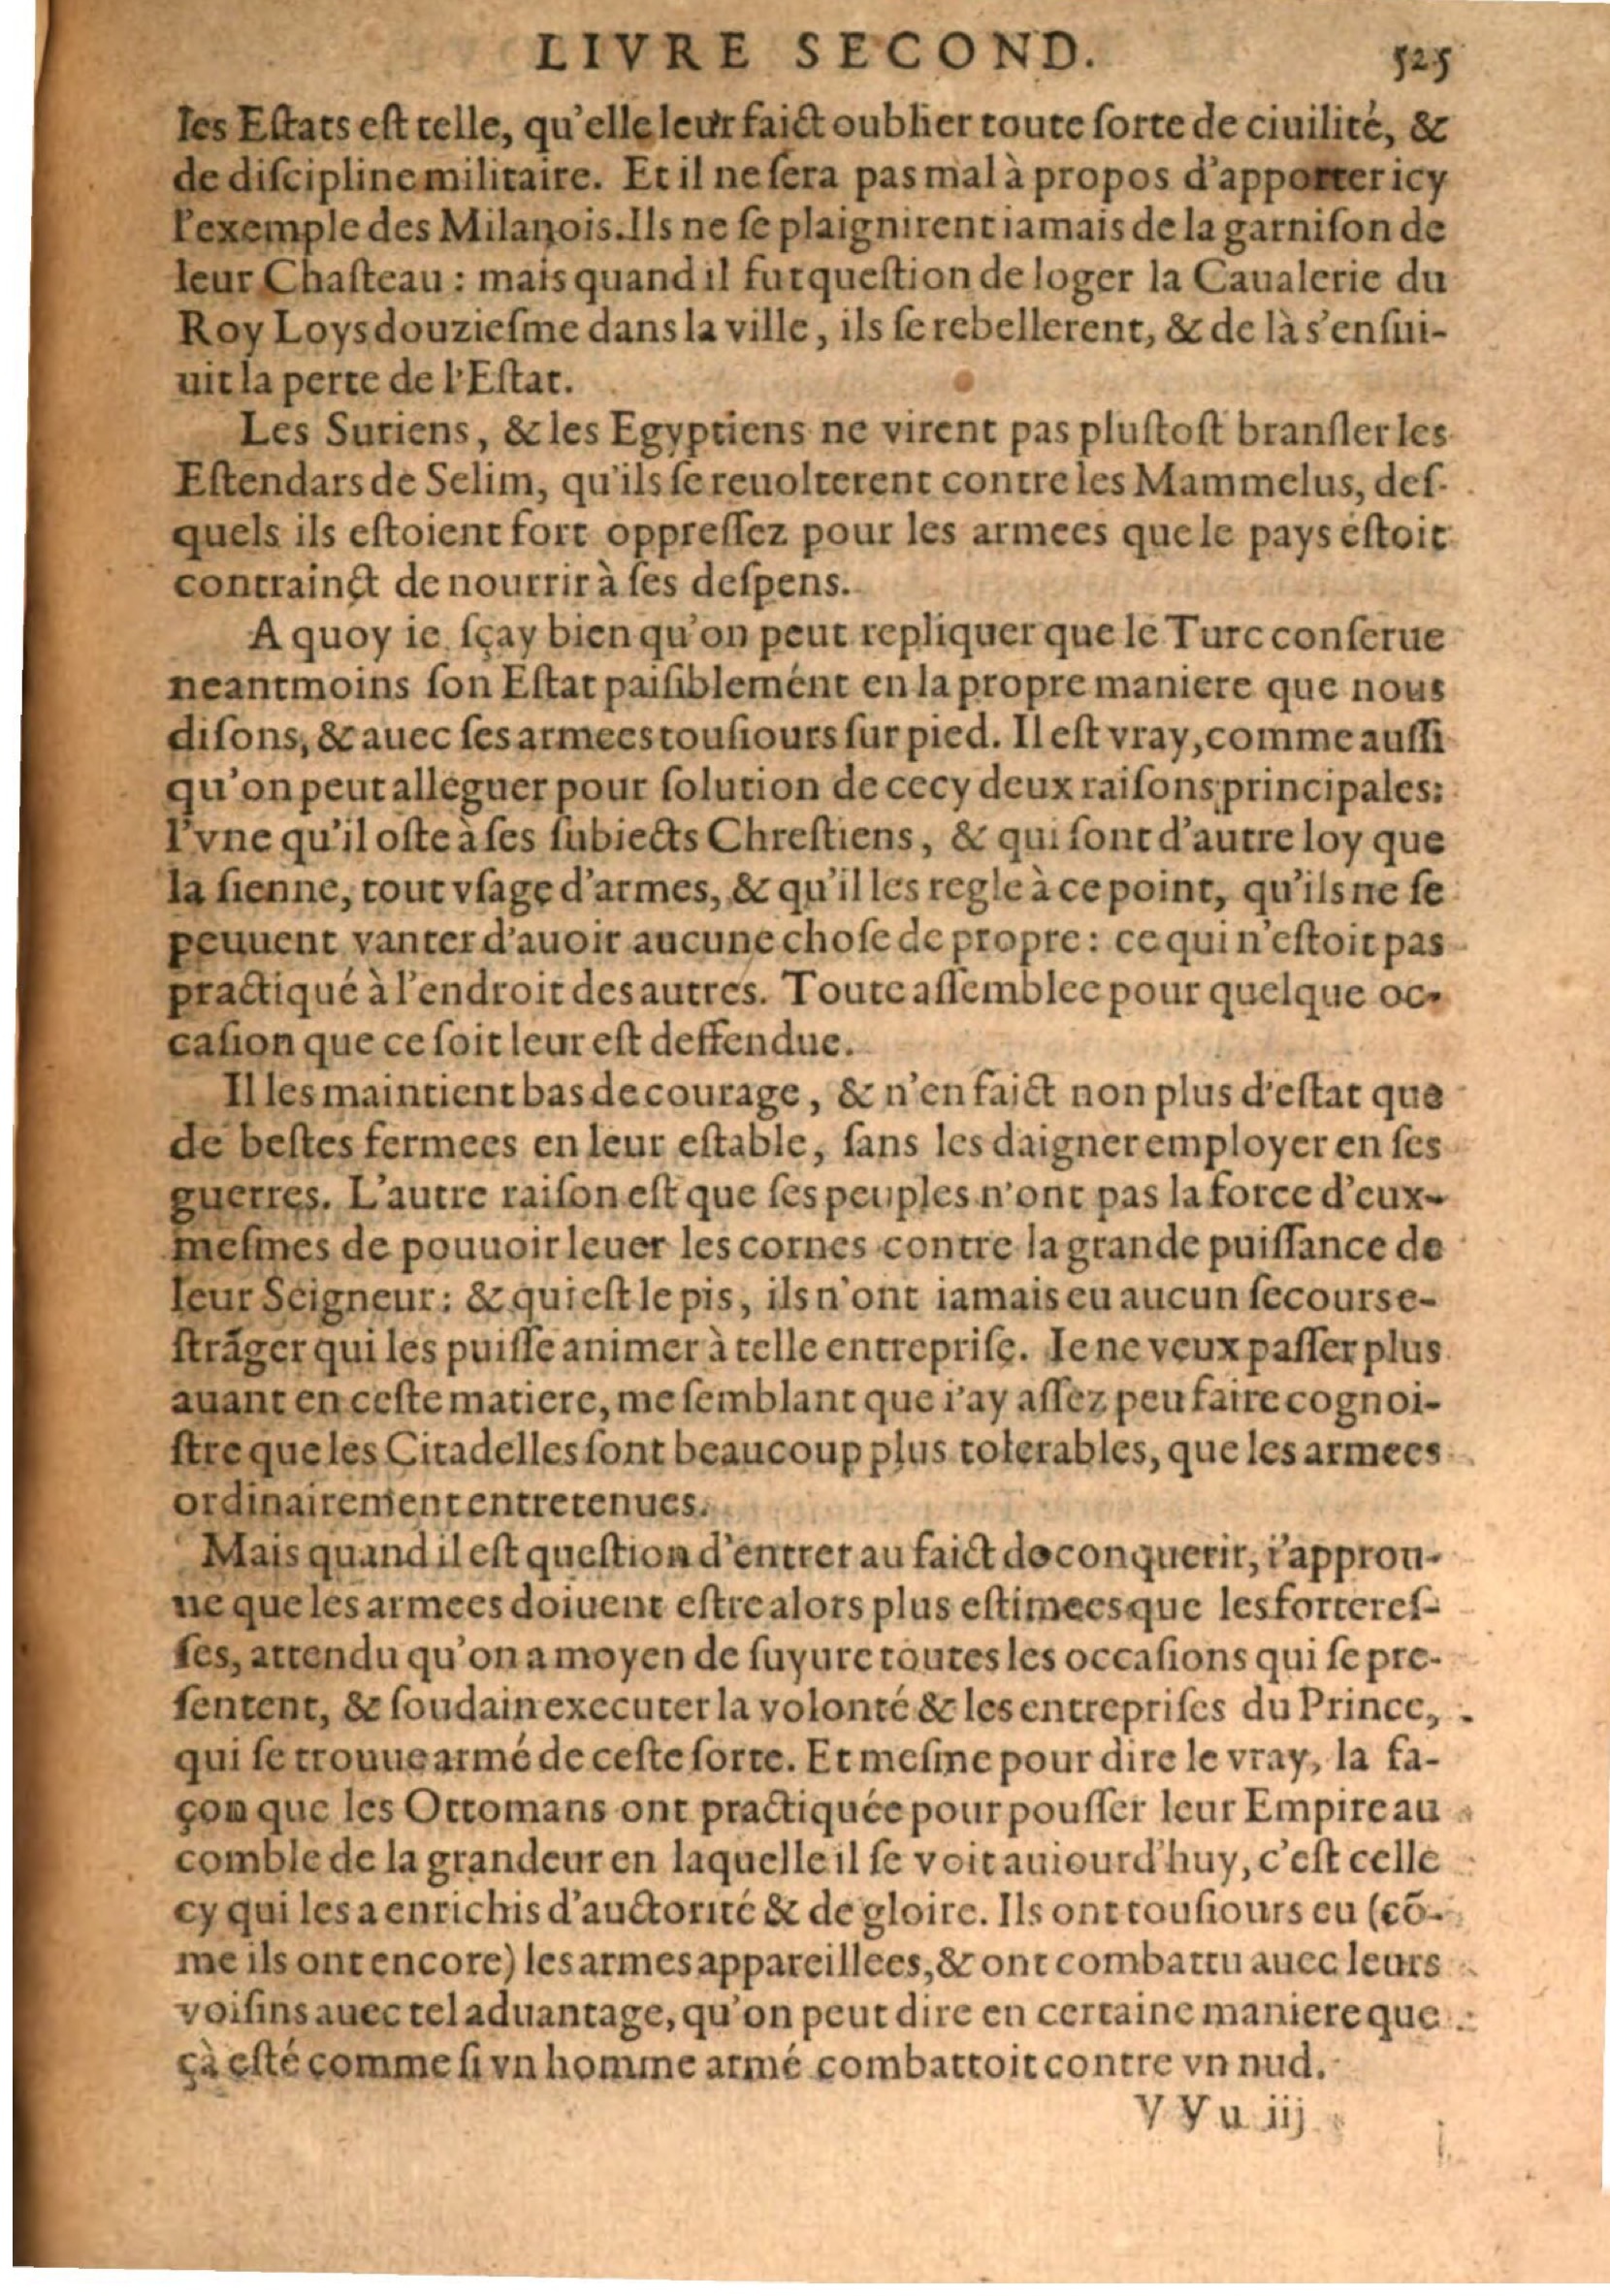 LIVRE SECOND. 525
les Eſtats eſt telle, qu'elle leur faict oublier toute ſorte de ciuilité, &
de diſcipline militaire. Et il ne ſera pas mal à propos d'apporter icy
l'exemple des Milanois. Ils ne ſe plaignirent iamais de la garniſon de
leur Chaſteau : mais quand il fut queſtion de loger la Caualerie du
Roy Loys douzieſme dans la ville, ils ſe rebellerent, & de là s'enſui-
uit la perte de l'Eſtat.
Les Suriens, & les Egyptiens ne virent pas pluſtoſt branſler les
Eſtendars de Selim, qu'ils ſe reuolterent contre les Mammelus, deſ-
quels ils eſtoient fort oppreſſez pour les armees que le pays eſtoit
contrainct de nourrir à ſes deſpens.
A quoy ie ſçay bien qu'on peut repliquer que le Turc conſerue
neantmoins ſon Eſtat paiſiblemént en la propre maniere que nous
diſons, & auec ſes armees touſiours ſur pied. Il eſt vray, comme auſſi
qu'on peut alleguer pour ſolution de cecy deux raiſons principales:
l'vne qu'il oſte à ſes ſubiects Chreſtiens, & qui ſont d'autre loy que
la ſienne, tout vſage d'armes, & qu'il les regle à ce point, qu'ils ne ſe
peuuent vanter d'auoir aucune choſe de propre : ce qui n'eſtoit pas
practiqué à l'endroit des autres. Toute aſſemblee pour quelque oc-
caſion que ce ſoit leur eſt deffendue.
Il les maintient bas de courage, & n'en faict non plus d'eſtat que
de beſtes fermees en leur eſtable, ſans les daigner employer en ſes
guerres. L'autre raiſon eſt que ſes peuples n'ont pas la force d'eux-
meſmes de pouuoir leuer les cornes contre la grande puiſſance de
leur Seigneur : & qui eſt le pis, ils n'ont iamais eu aucun ſecours e-
ſtrãger qui les puiſſe animer à telle entrepriſe. Ie ne veux paſſer plus
auant en ceſte matiere, me ſemblant que i'ay aſſez peu faire cognoi-
ſtre que les Citadelles ſont beaucoup plus tolerables, que les armees
ordinairement entretenues.
Mais quand il eſt queſtion d'entrer au faict de conquerir, i'approu-
ue que les armees doiuent eſtre alors plus eſtimees que les fortereſ-
ſes, attendu qu'on a moyen de ſuyure toutes les occaſions qui ſe pre-
ſentent, & ſoudain executer la volonté & les entrepriſes du Prince,
qui ſe trouue armé de ceſte ſorte. Et meſme pour dire le vray, la fa-
çon que les Ottomans ont practiquée pour pouſſer leur Empire au
comble de la grandeur en laquelle il ſe voit auiourd'huy, c'eſt celle
cy qui les a enrichis d'auctorité & de gloire. Ils ont touſiours eu (cõ-
me ils ont encore) les armes appareillees, & ont combattu auec leurs
voiſins auec tel aduantage, qu'on peut dire en certaine maniere que
çà eſté comme ſi vn homme armé combattoit contre vn nud.
V V u iij